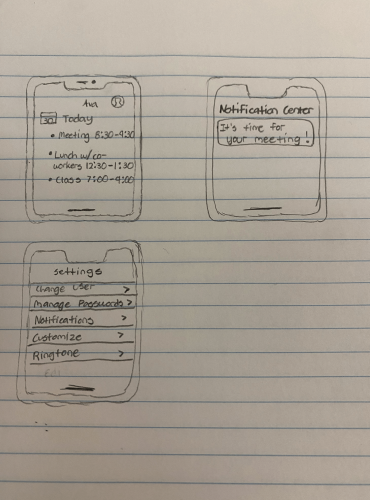 Ava
30
Today
• Meeting 8:30-9:30
• Lunch w/co-
workers 12:30-1:30
• Class 7:00-9:00
Notification Center
It's time for
your meeting!
settings
Change User >
Manage Passwords >
Notifications >
Customize >
Ringtone >